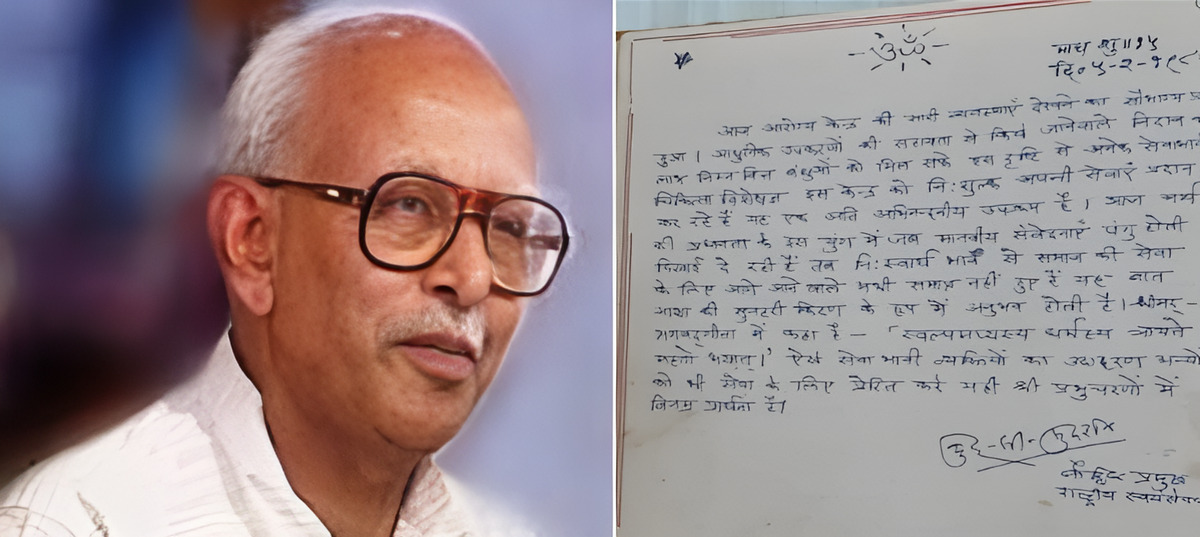 ॐ
माघ शु॥१५
दि० ५-२-१९८
आज आरोग्य केन्द्र की सभी व्यवस्थाएँ देखने का सौभाग्य
हुआ। आधुनिक उपकरणों की सहायता से किये जानेवाले निदान
लाभ निम्न वित्त बंधुओं को मिल सके इस दृष्टि से अनेक सेवाभा
चिकित्सा विशेषज्ञ इस केन्द्र को नि:शुल्क अपनी सेवाएँ प्रदान
कर रहे हैं यह एक अति अभिनन्दनीय उपक्रम है। आज अर्थ
की प्रधानता के इस युग में जब मानवीय संवेदनाएँ पंगु होती
दिखाई दे रही हैं तब नि:स्वार्थ भाव से समाज की सेवा
के लिए आगे आने वाले अभी समाप्त नहीं हुए हैं यह बात
आशा की सुनहरी किरण के रूप में अनुभव होती है। श्रीमद्-
भगवद्गीता में कहा है - 'स्वल्पमप्यस्य धर्मस्य त्रायते
महतो भयात्।' ऐसे सेवा भावी व्यक्तियों का उदाहरण अन्यों
को भी सेवा के लिए प्रेरित करे यही श्री प्रभुचरणों में
विनम्र प्रार्थना है।
कु-सी-सुदर्शन
बौद्धिक प्रमुख
राष्ट्रीय स्वयंसेवक